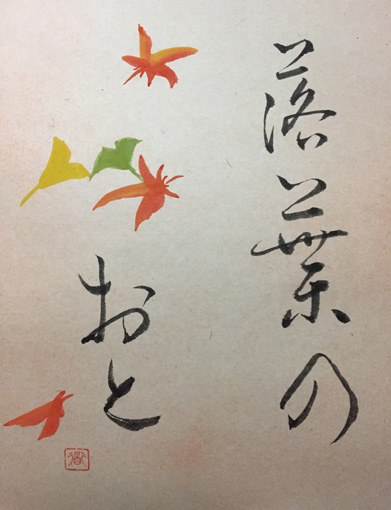 落葉の
おと